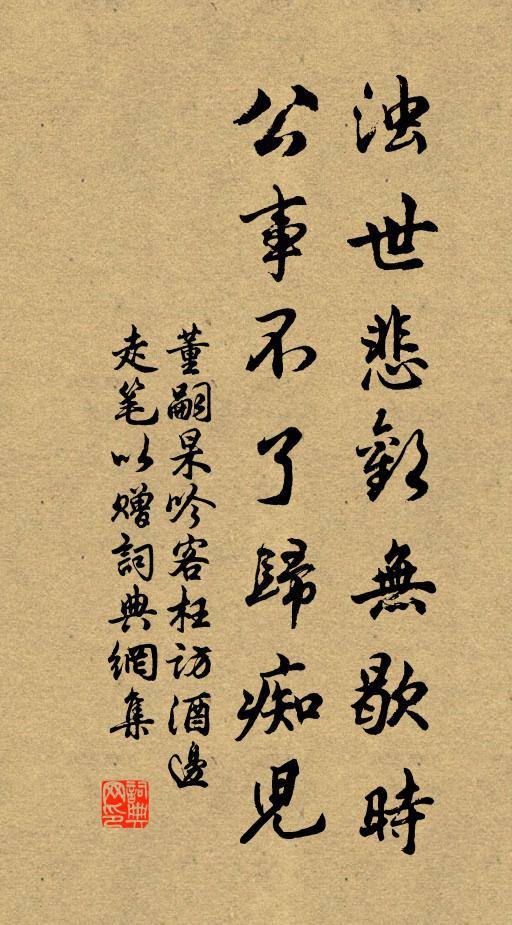 浊世悲歡無歇時
公事不了歸痴兒
董嗣杲吟客枉访酒邊
走笔以赠詞典網集
詞典
网印